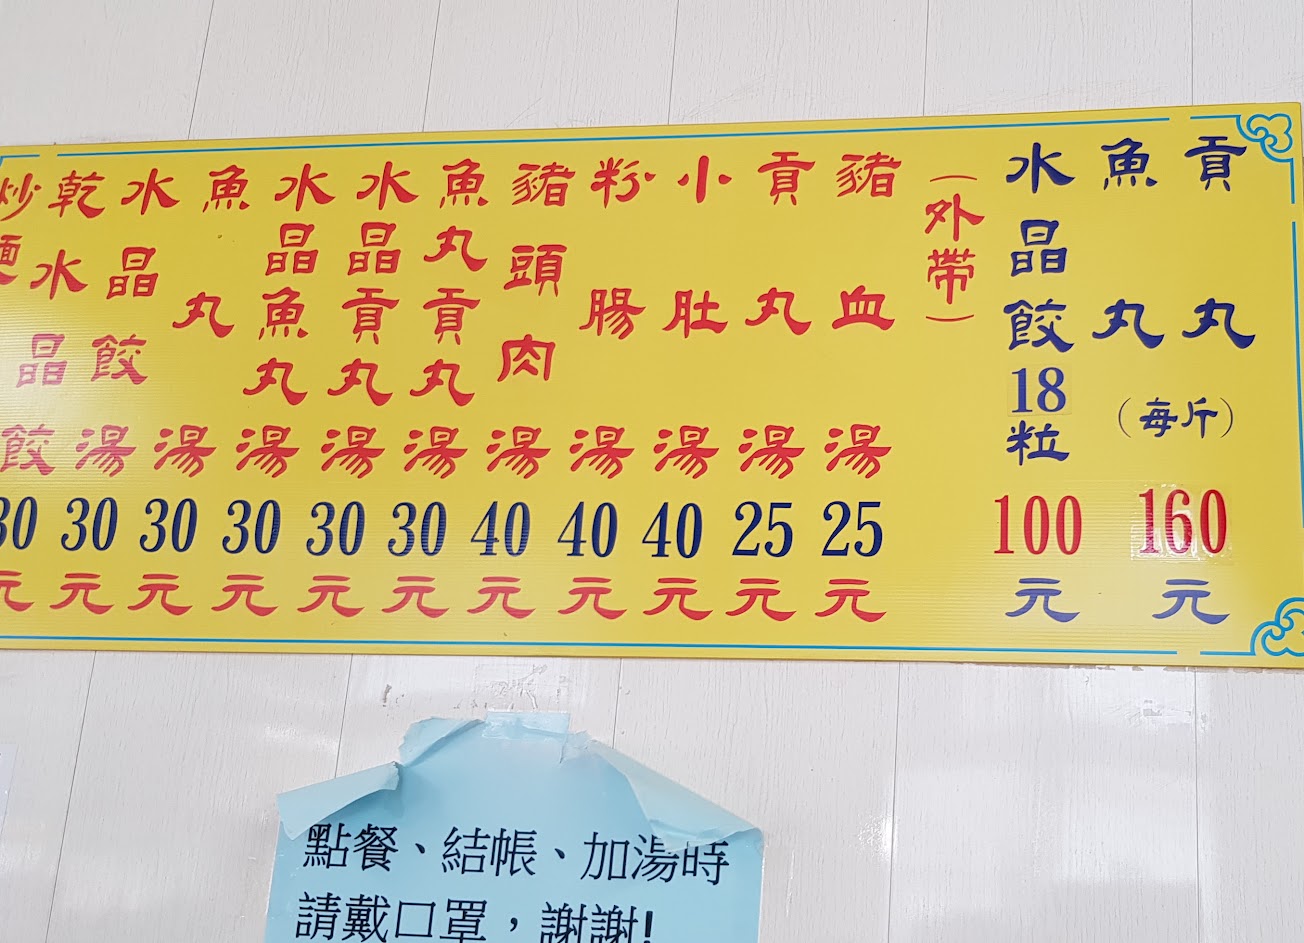 炒
乾水晶餃30元
水晶餃湯30元
魚丸湯30元
水晶魚丸湯30元
水晶貢丸湯30元
魚丸貢丸湯30元
豬頭肉湯40元
粉腸湯40元
小肚湯40元
貢丸湯25元
豬血湯25元
(外帶)
水晶餃18粒100元
魚丸
貢丸
(每斤)
160元
點餐、結帳、加湯時
請戴口罩,謝謝!